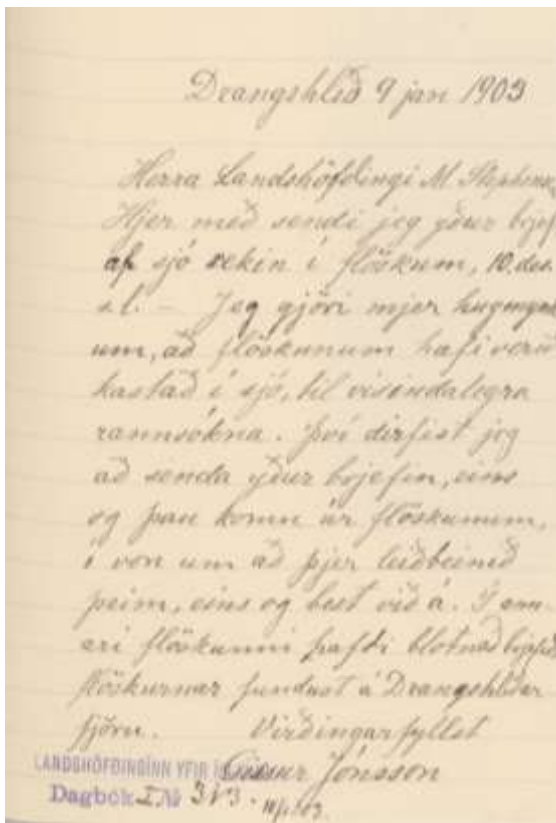 Drangshlíð 9 jan 1903
Herra Landshöfðingi M Stephensen
Hjer með sendi jeg yður brjef
af sjó rekin í flöskum, 10. des.
s.l. – Jeg gjöri mjer hugmynd
um, að flöskunum hafi verið
kastað í sjó, til vísindalegra
rannsókna. Því dirfist jeg
að senda yður brjefin, eins
og þau komu úr flöskunum,
í von um að þjer leiðbeinið
þeim, eins og best við á. Í ann-
ari flöskunni hafði blotnað brjefið
flöskurnar fundust á Drangshlíðar
fjöru. Virðingarfyllst
Jónsson
LANDSHÖFÐINGINN YFIR
Dagbók I, № 313.